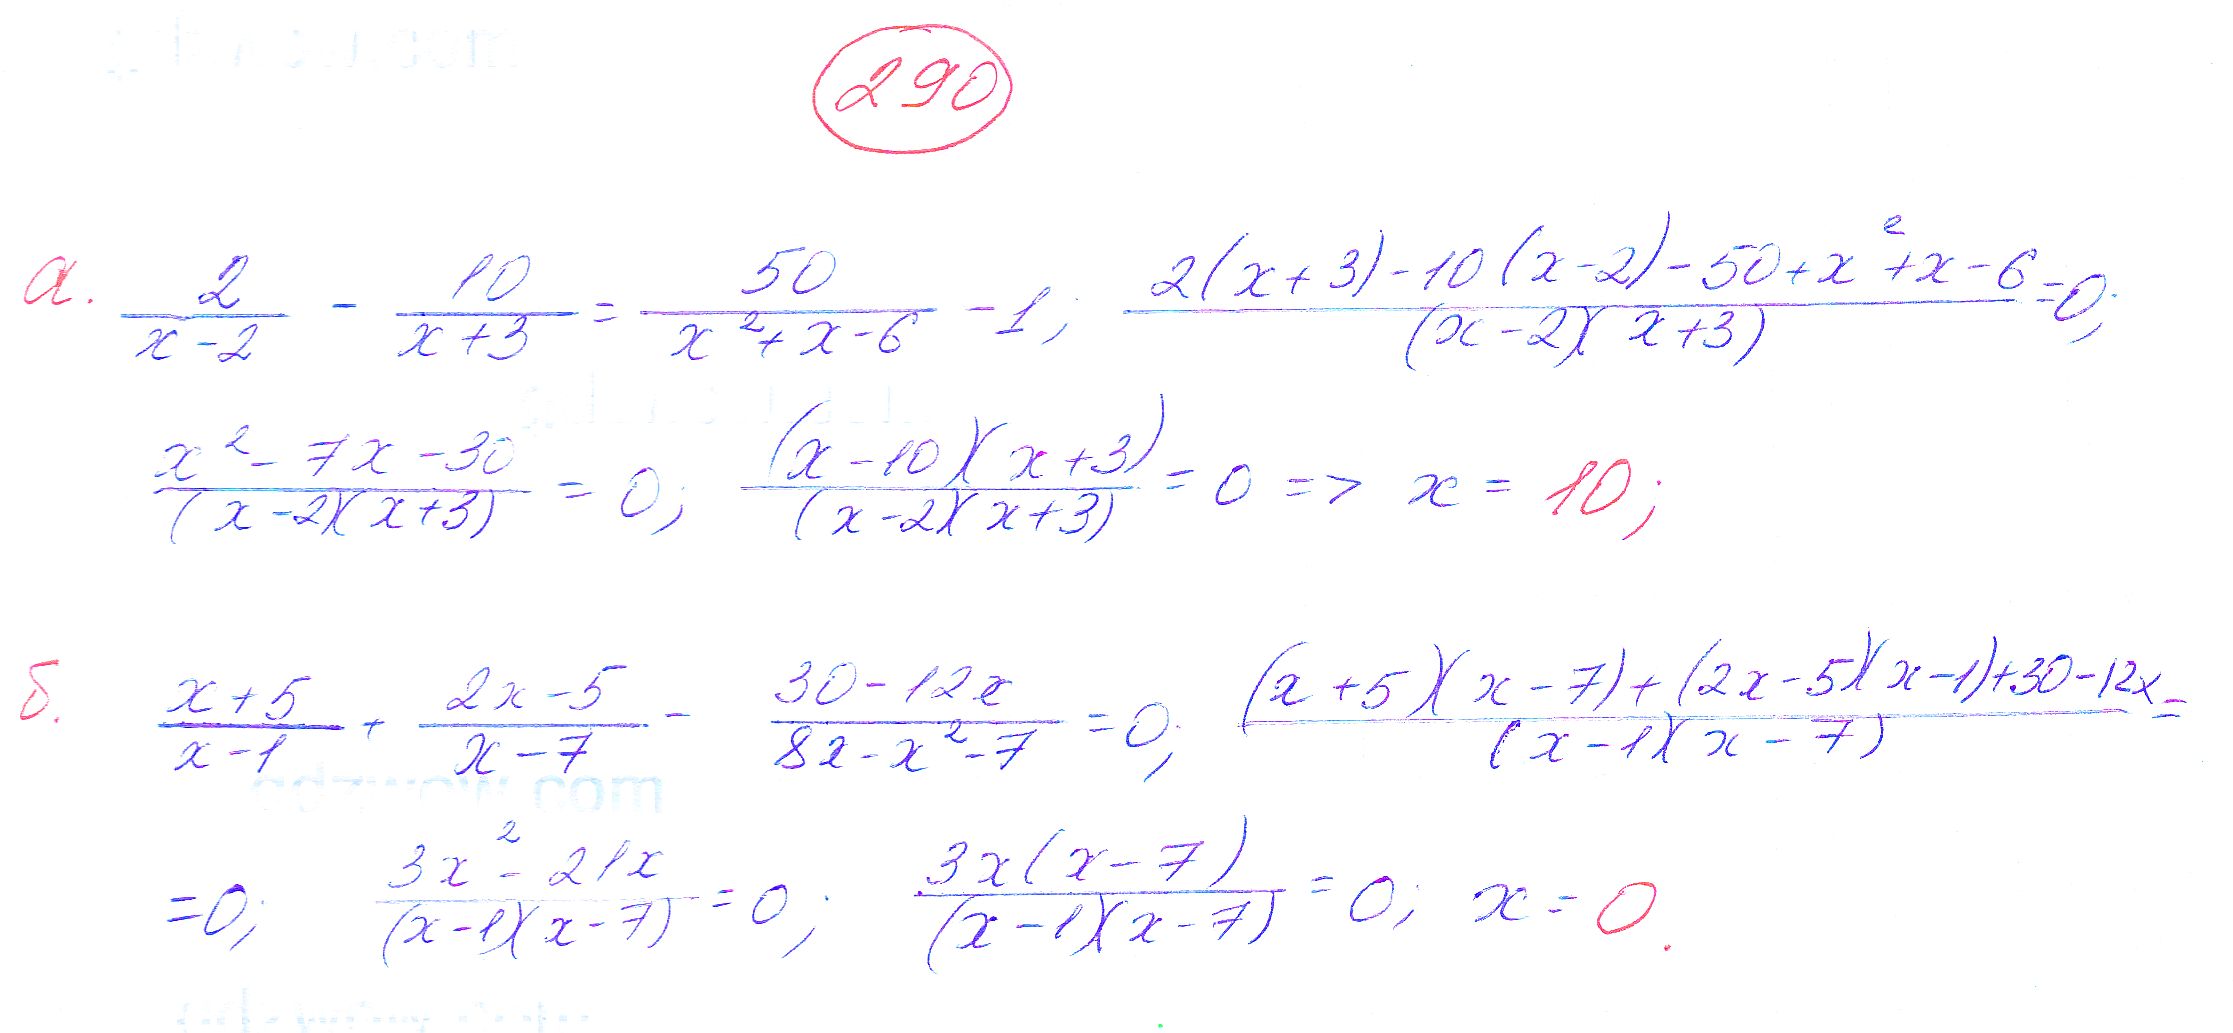 290
а. 2/(x-2) - 10/(x+3) = 50/(x²+x-6) - 1; (2(x+3)-10(x-2)-50+x²+x-6)/((x-2)(x+3)) = 0;
(x²-7x-30)/((x-2)(x+3)) = 0; ((x-10)(x+3))/((x-2)(x+3)) = 0 => x = 10;
б. (x+5)/(x-1) + (2x-5)/(x-7) - (30-12x)/(8x-x²-7) = 0; ((x+5)(x-7)+(2x-5)(x-1)+30-12x)/((x-1)(x-7)) =
=0; (3x²-21x)/((x-1)(x-7)) = 0; (3x(x-7))/((x-1)(x-7)) = 0; x = 0.